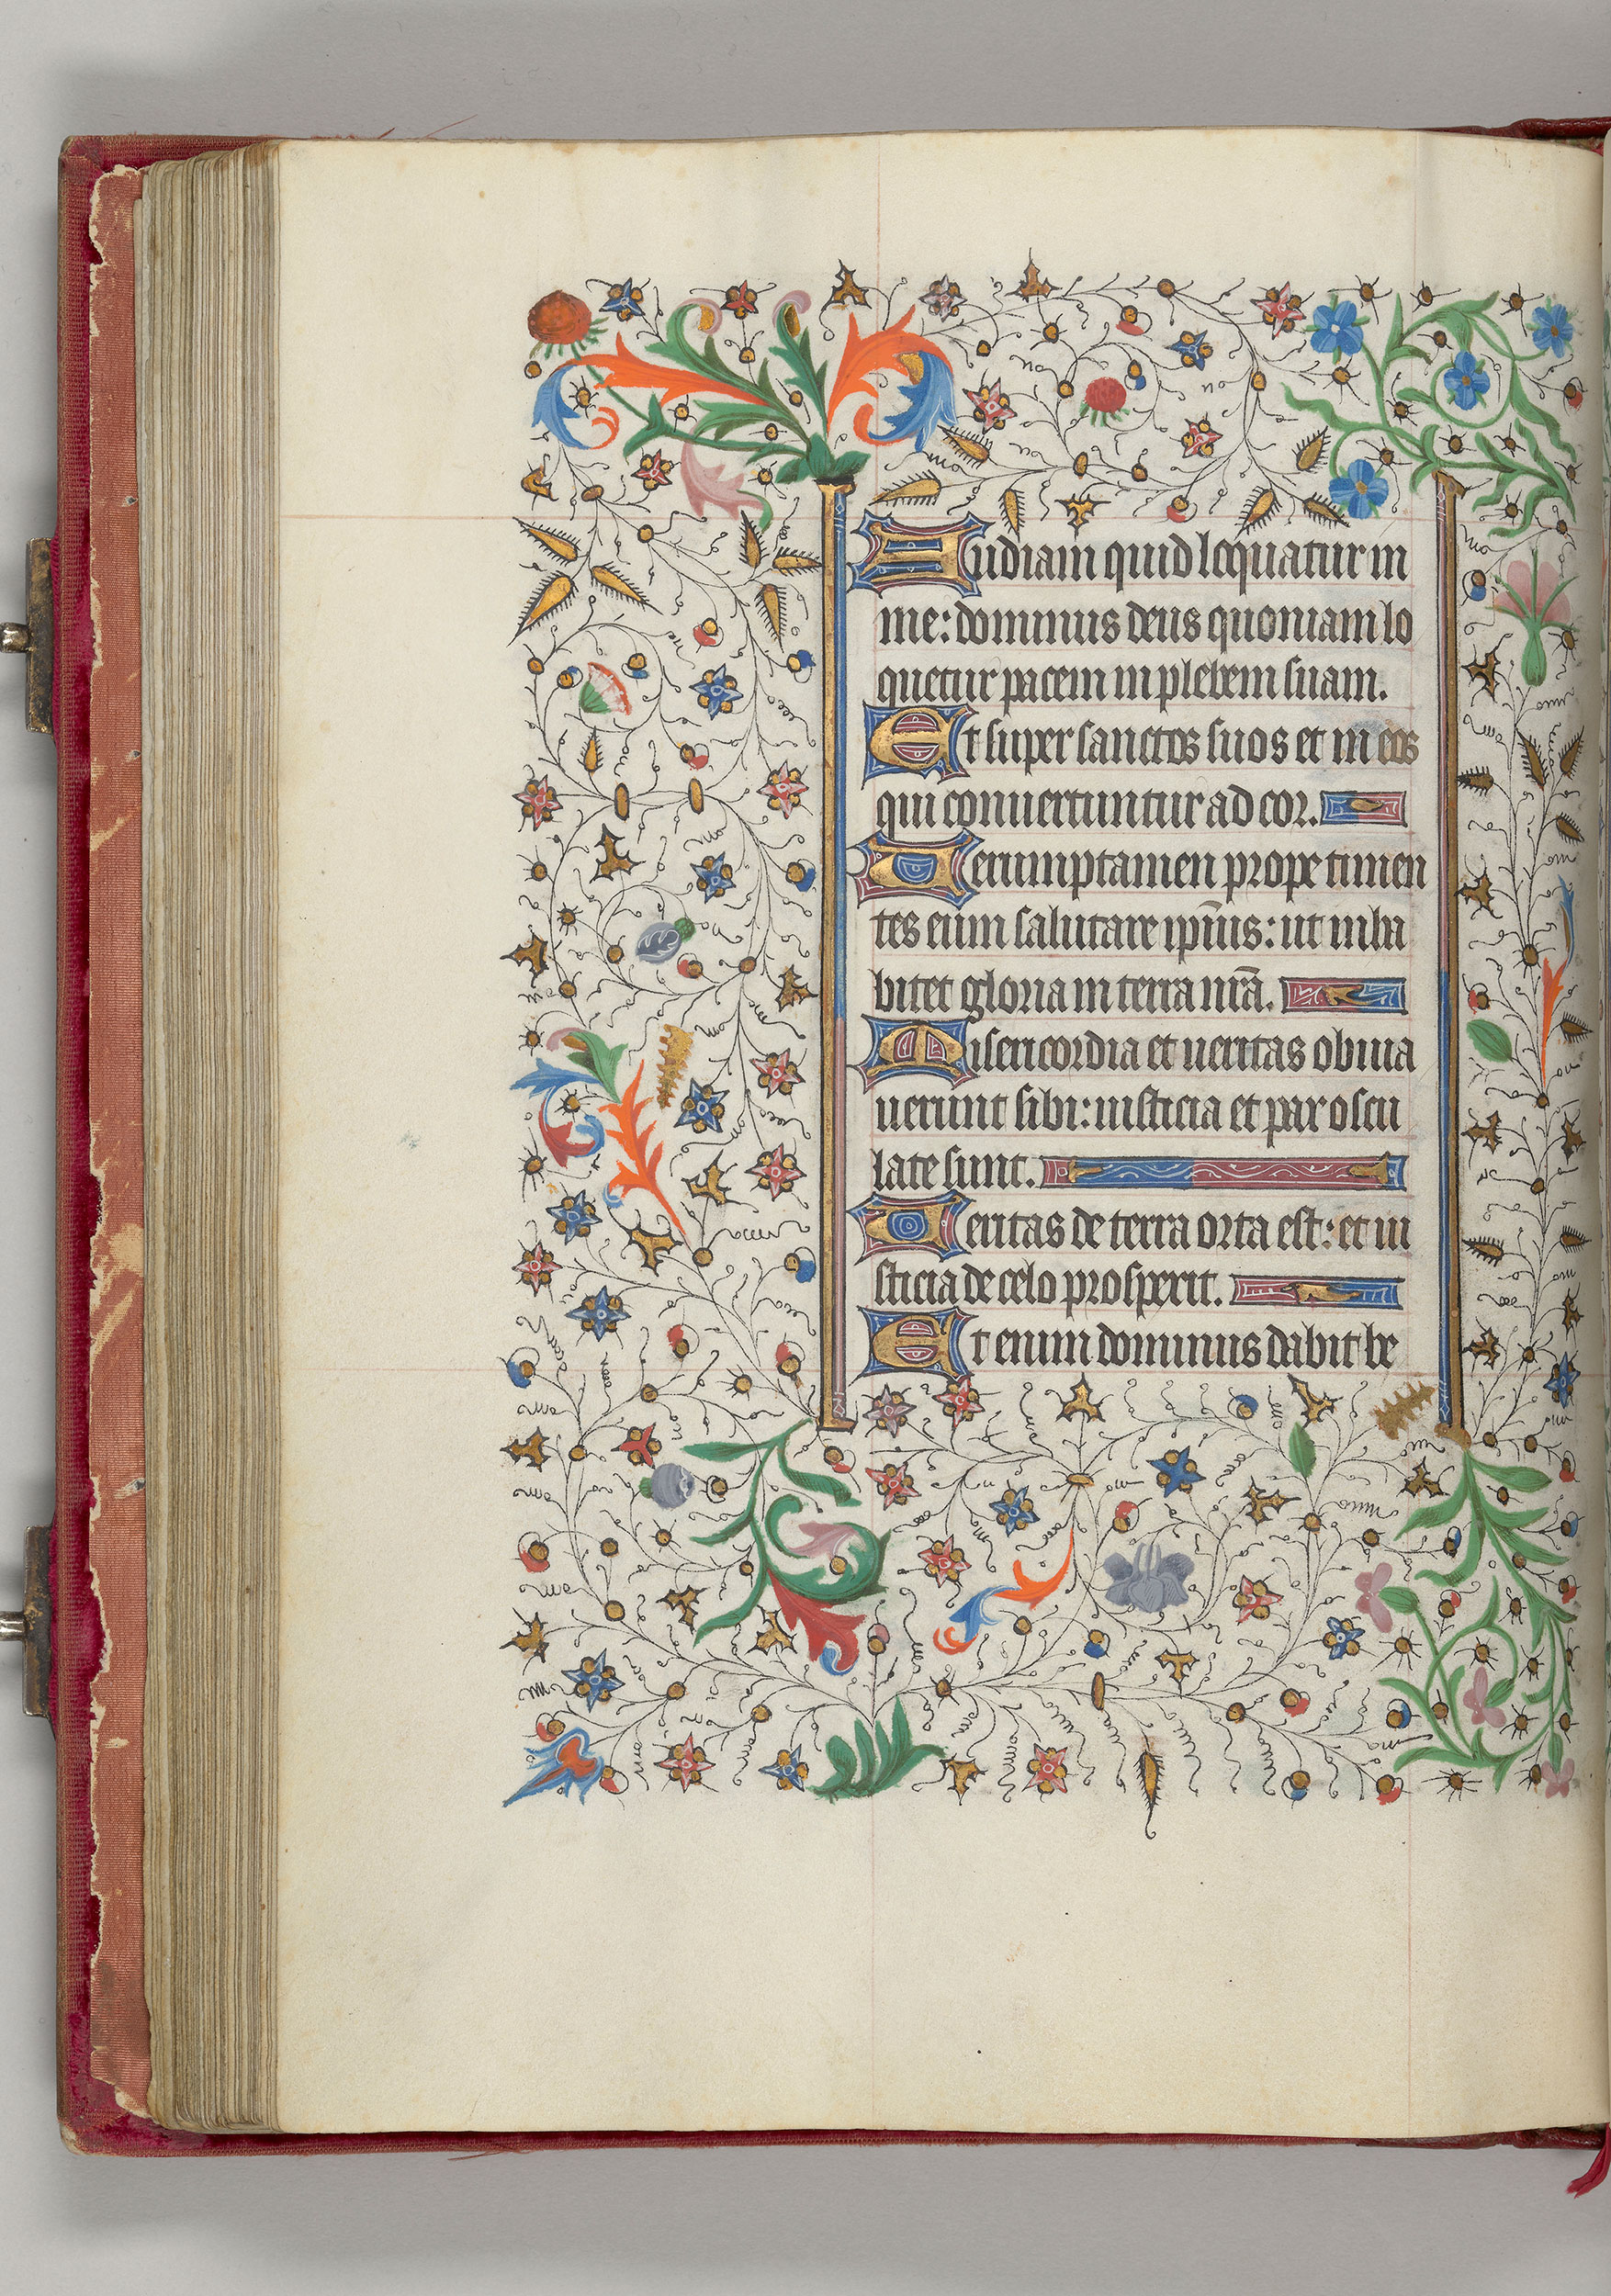 Audiam quid loquatur in
me: dominus deus quoniam lo
quetur pacem in plebem suam.
Et super sanctos suos et in eos
qui convertuntur ad cor.
Uerumptamen prope timen
tes eum salutare ip̄ius: ut inha
bitet gloria in terra nr̄a.
Misericordia et ueritas obuia
uerunt sibi: iusticia et pax oscu
late sunt.
Ueritas de terra orta est: et iu
sticia de celo prosperit.
Et enim dominus dabit be